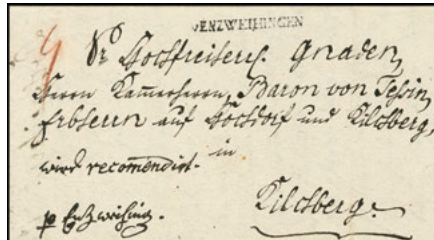 VENZWEIHINGEN
Sr Hochfreiherrl. Gnaden,
Herrn Kammerherrn, Baron von Tessin,
Erbherrn auf Hochdorf und Kilchberg,
in
wird recomendirt.
Kilchberg.
p Enzweihing.